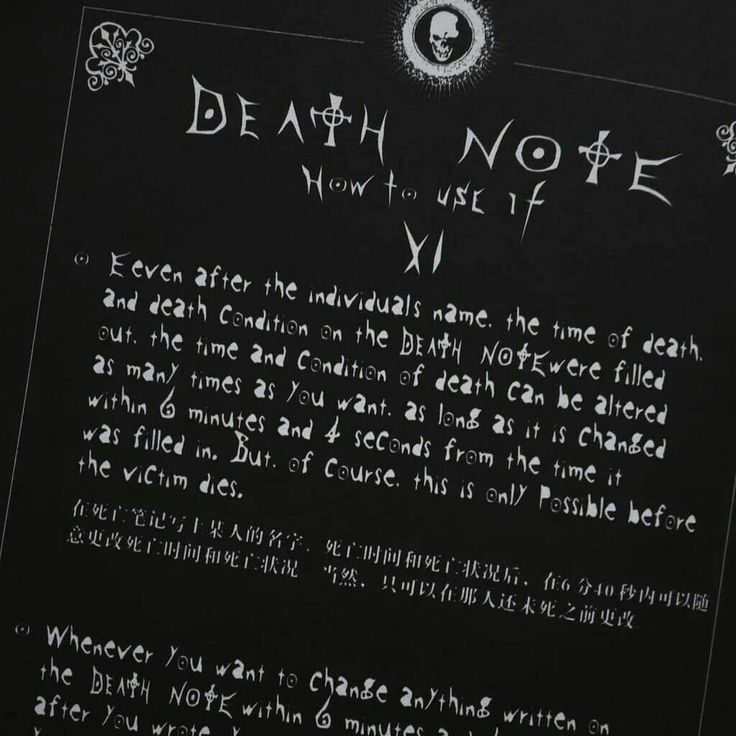 DEATH NOTE
How to use it
XI
Eeven after the individuals name, the time of death,
and death condition on the DEATH NOTE were filled
out, the time and condition of death can be altered
as many times as you want, as long as it is changed
within 6 minutes and 4 seconds from the time it
was filled in. But, of course, this is only possible before
the victim dies.
在死亡笔记写上某人的名字、死亡时间和死亡状况后，在6分40秒内可以随
意更改死亡时间和死亡状况 当然，只可以在那人还未死之前更改
Whenever you want to change anything written on
the DEATH NOTE within 6 minutes
after you wrote